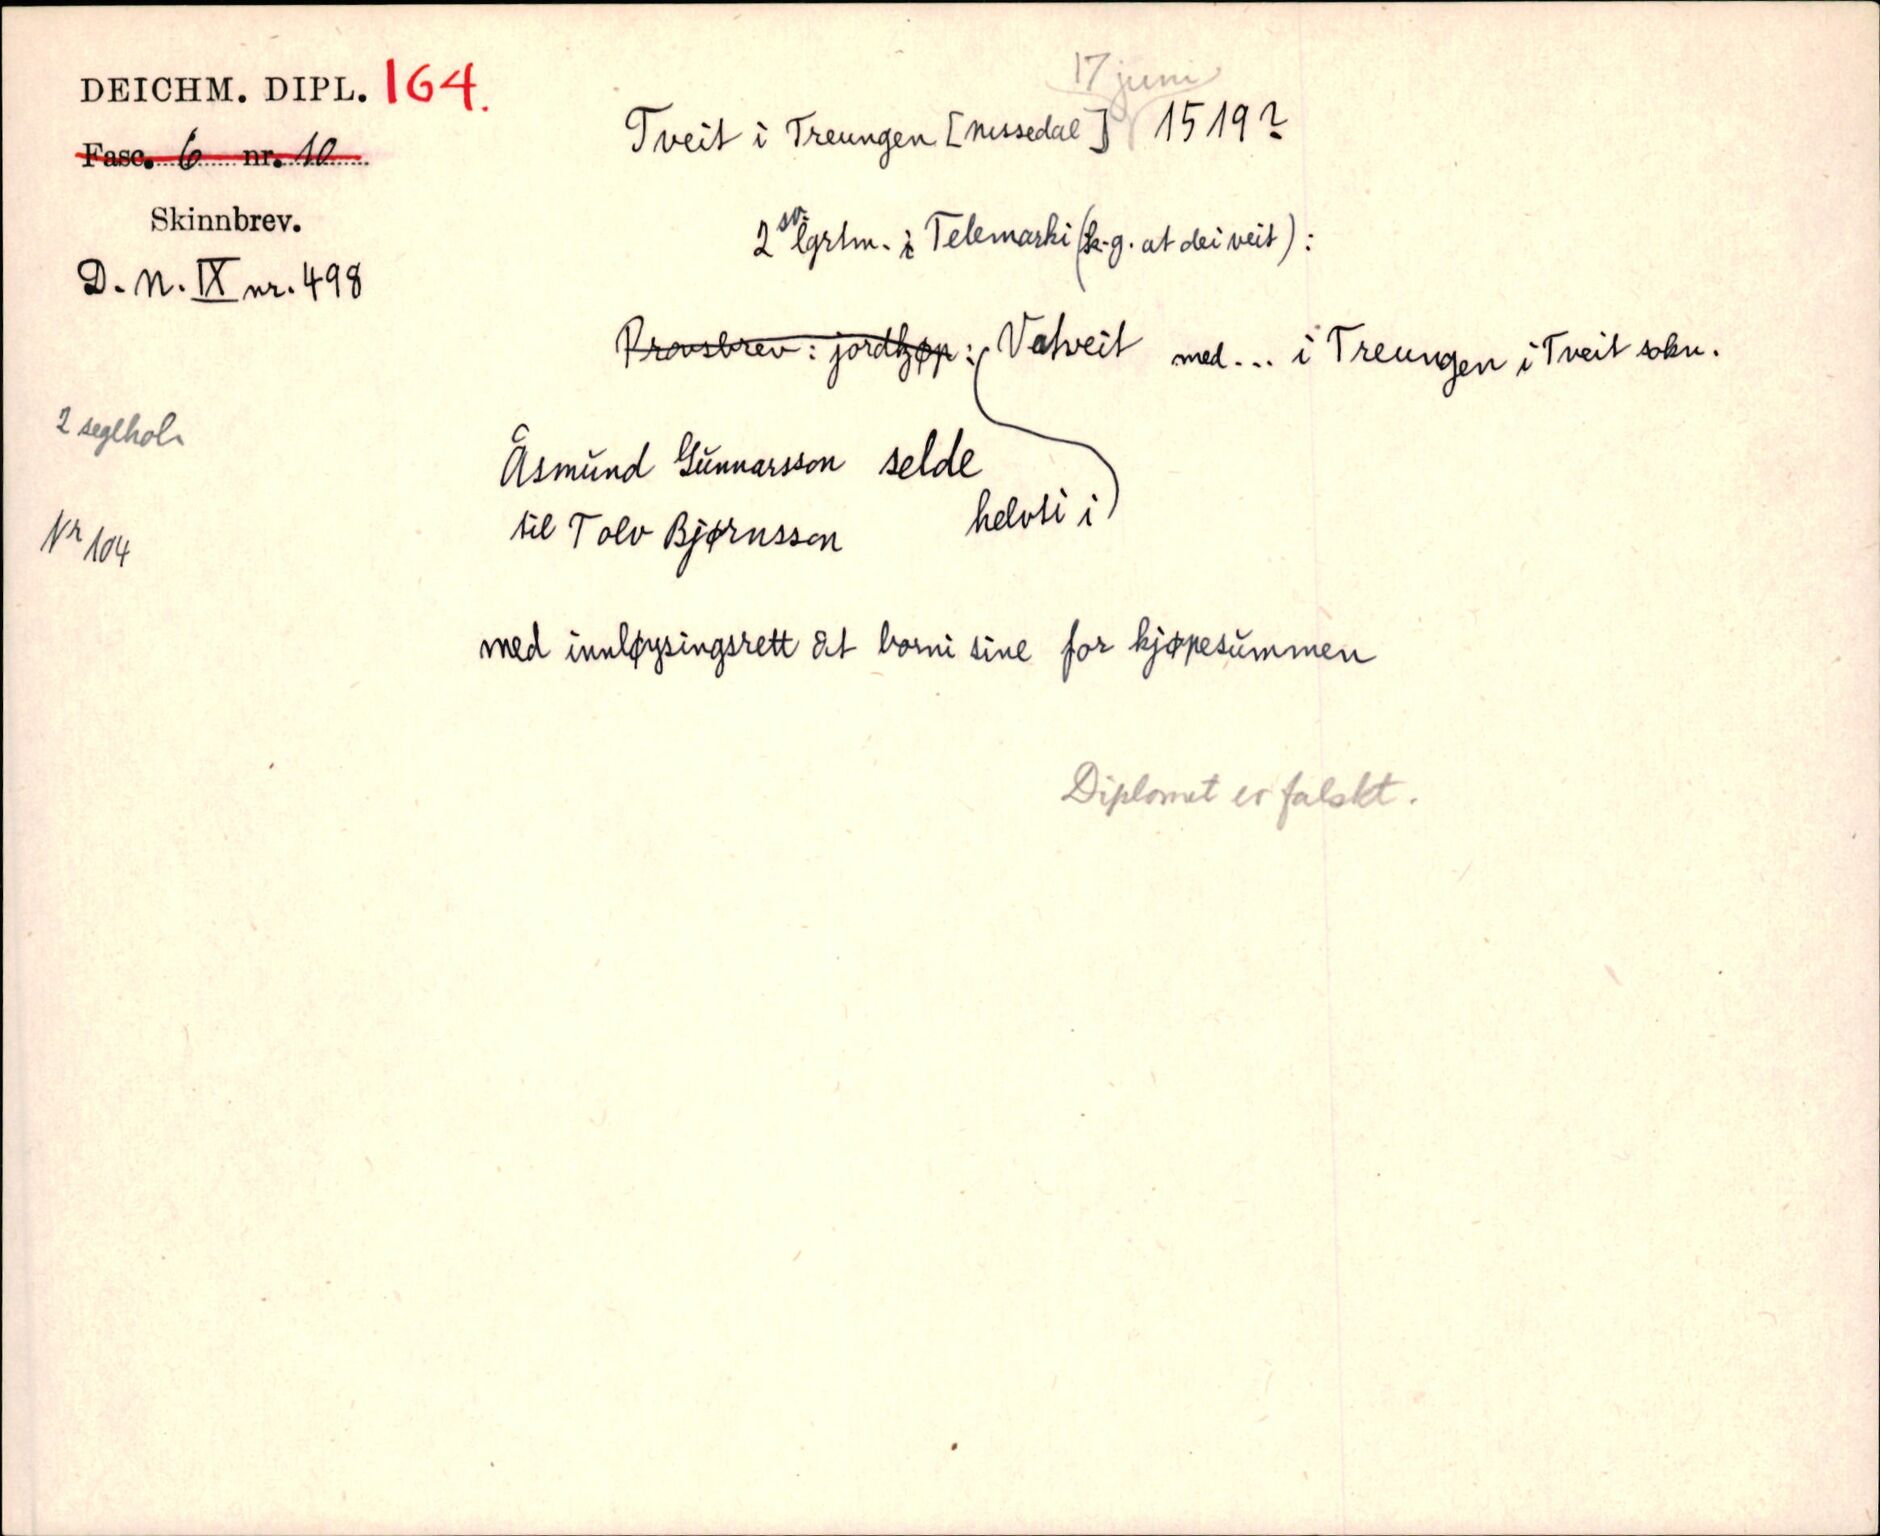 DEICHM. DIPL. 164.
Fasc. 6 nr. 10
Skinnbrev.
D. N. IX nr. 498
2 seglhol.
Nr 104
17 juni
Tveit i Treungen [Nissedal] 1519?
2 sv. lgrtm. i Telemarki (k-g. at dei veit) :
Provsbrev : jordkjøp : Vatveit med... i Treungen i Tveit sokn.
Åsmund Gunnarsson selde
til Tolv Bjørnsson helvti i
med innløysingsrett åt borni sine for kjøpesummen
Diplomet er falskt.